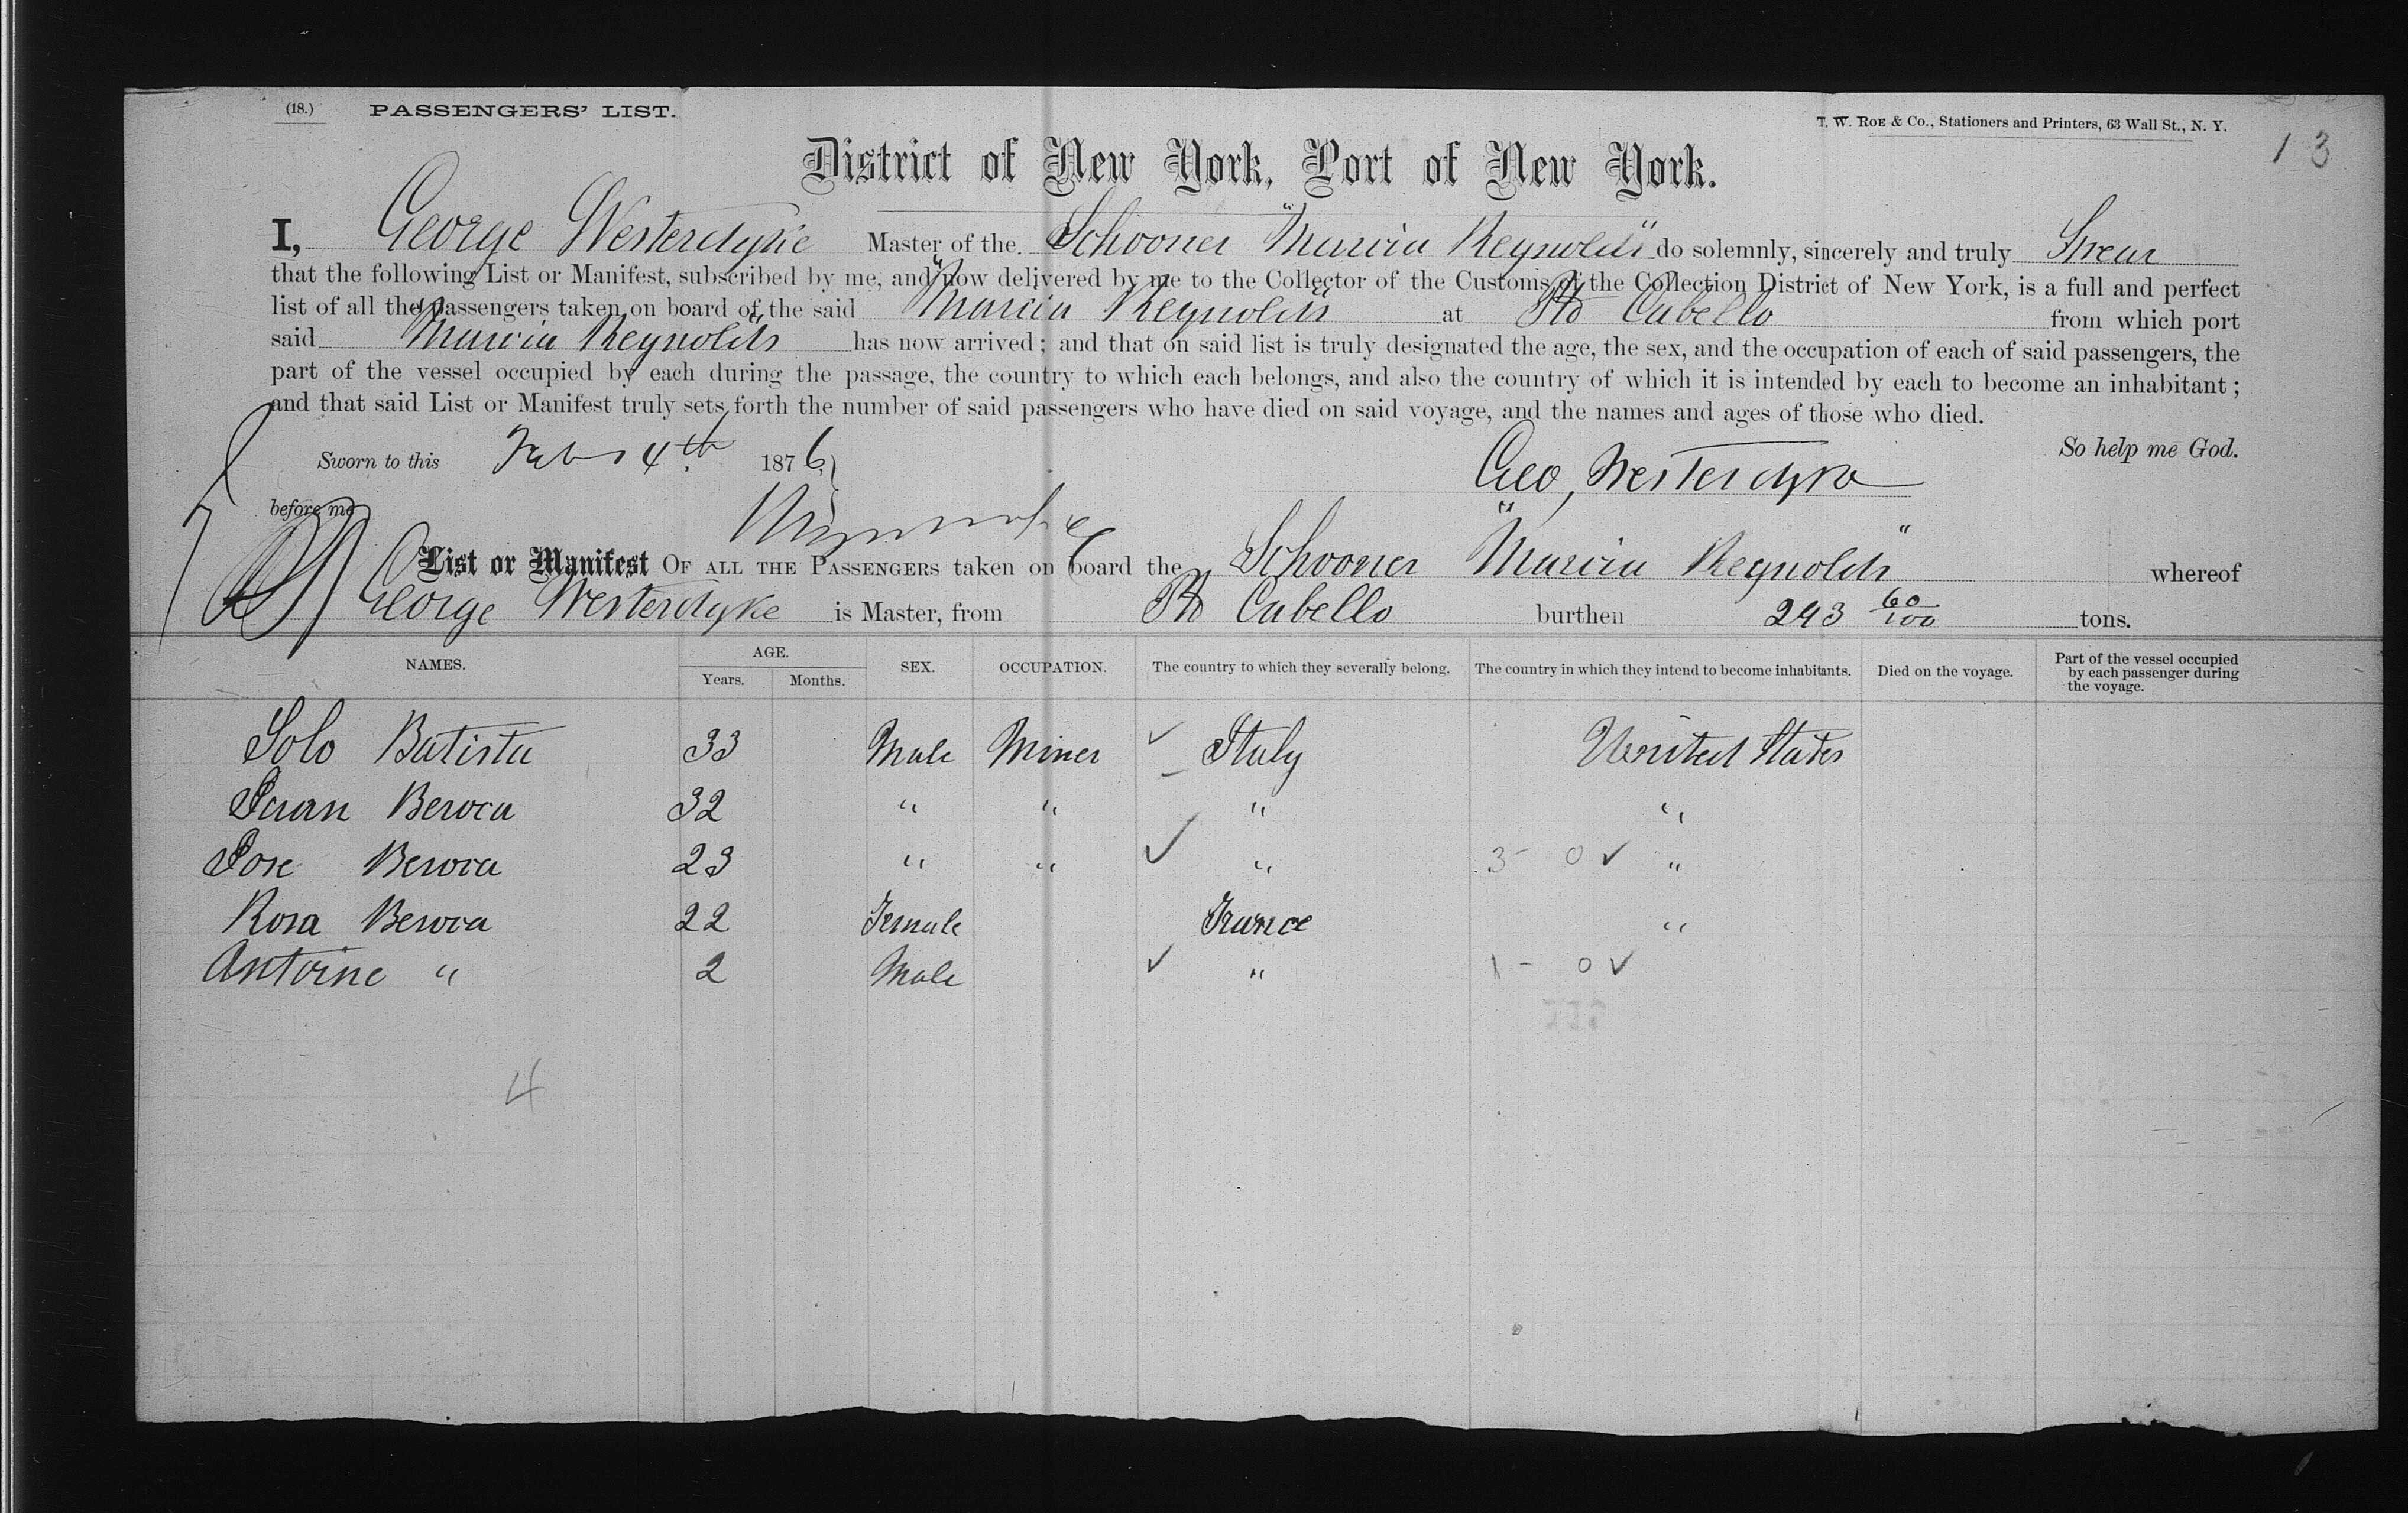 (18.) PASSENGERS' LIST.
T. W. ROE & Co., Stationers and Printers, 63 Wall St., N. Y.
13
District of New York, Port of New York.
I, George Westerdyke Master of the Schooner "Marcia Reynolds" do solemnly, sincerely and truly Swear
that the following List or Manifest, subscribed by me, and now delivered by me to the Collector of the Customs of the Collection District of New York, is a full and perfect
list of all the passengers taken on board of the said "Marcia Reynolds" at Pto Cabello from which port
said "Marcia Reynolds" has now arrived; and that on said list is truly designated the age, the sex, and the occupation of each of said passengers, the
part of the vessel occupied by each during the passage, the country to which each belongs, and also the country of which it is intended by each to become an inhabitant;
and that said List or Manifest truly sets forth the number of said passengers who have died on said voyage, and the names and ages of those who died.
So help me God.
Sworn to this Feb 4th 1876
Geo, Westerdyke
before me
List or Manifest OF ALL THE PASSENGERS taken on board the Schooner "Marcia Reynolds" whereof
George Westerdyke is Master, from Pto Cabello burthen 293 60/100 tons.
NAMES. AGE. Years. Months. SEX. OCCUPATION. The country to which they severally belong. The country in which they intend to become inhabitants. Died on the voyage. Part of the vessel occupied by each passenger during the voyage.
Solo Batista 33 Male Miner ✓ Italy United States
Juan Beroca 32 " " " "
Jose Beroca 23 " " ✓ " 3 - 0 ✓ "
Rosa Beroca 22 Female France "
Antoine " 2 Male ✓ " 1 - 0 ✓
4